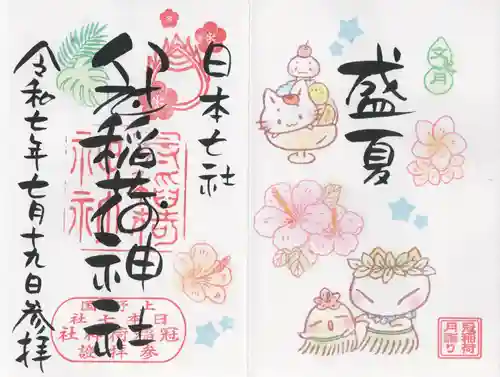 文月
盛夏
冠稲荷
月詣り
日本七社
冠稲荷神社
令和七年七月十九日参拝
上野国
日本七社
冠稲荷神社
参拝證